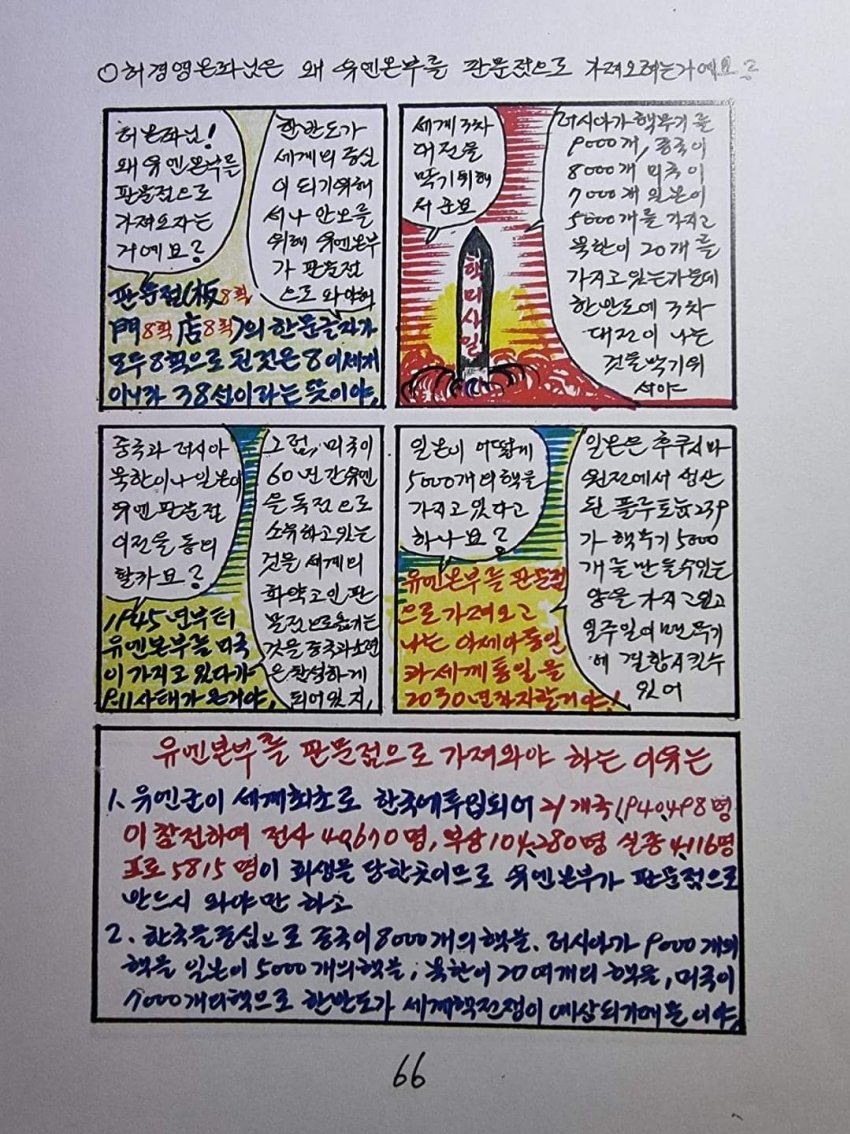 ○허경영본좌님은 왜 유엔본부를 판문점으로 가져오려는가예요?
허본좌님!
왜 유엔본부를
판문점으로
가져오자는
거예요?
한반도가
세계의 중심
이 되기위해
서나 안보를
위해 유엔본부
가 판문점
으로 와야해
판문점(板8획,
門8획 店8획)의 한문글자가
모두 8획으로 된것은 8이세개
이니까 38선이라는 뜻이야.
세계3차
대전을
막기위해
서군요
러시아가 핵무기를
9000개, 중국이
8000개 미국이
7000개 일본이
5000개를 가지고
북한이 20개를
가지고 있는가운데
한반도에 3차
대전이 나는
것을막기위
서야
핵미사일
중국과 러시아
북한이나 일본이
유엔 판문점
이전을 동의
할까요?
그럼, 미국이
60년간 유엔
을 독점으로
소유하고있는
것을 세계의
화약고인 판
문점으로옮기는
것을 중국과소련
은 찬성하게
되어있지,
1945년부터
유엔본부를 미국
이 가지고 있다가
9.11사태가 온거야,
일본이 어떻게
5000개의핵을
가지고있다고
하나요?
일본은 후쿠시마
원전에서 생산
된 플루토늄239
가 핵무기 5000
개를 만들수있는
양을 가지고있고
일주일이면 무기
에 결합시킬수
있어
유엔본부를 판문점
으로가져오고
나는 아세아통일
과 세계통일을
2030년까지할거야!
유엔본부를 판문점으로 가져와야 하는 이유는
1. 유엔군이 세계최초로 한국에투입되어 21개국 1,940,498명
이 참전하여 전사 40,670명, 부상104,280명 실종4,116명
포로 5815명이 희생을 당한곳이므로 유엔본부가 판문점으로
반드시 와야만 하고
2. 한국을중심으로 중국이8000개의핵을. 러시아가 9000개의
핵을 일본이 5000개의핵을, 북한이 20여개의 핵을, 미국이
7000개의핵으로 한반도가 세계핵전쟁이 예상되기때문이야,
66